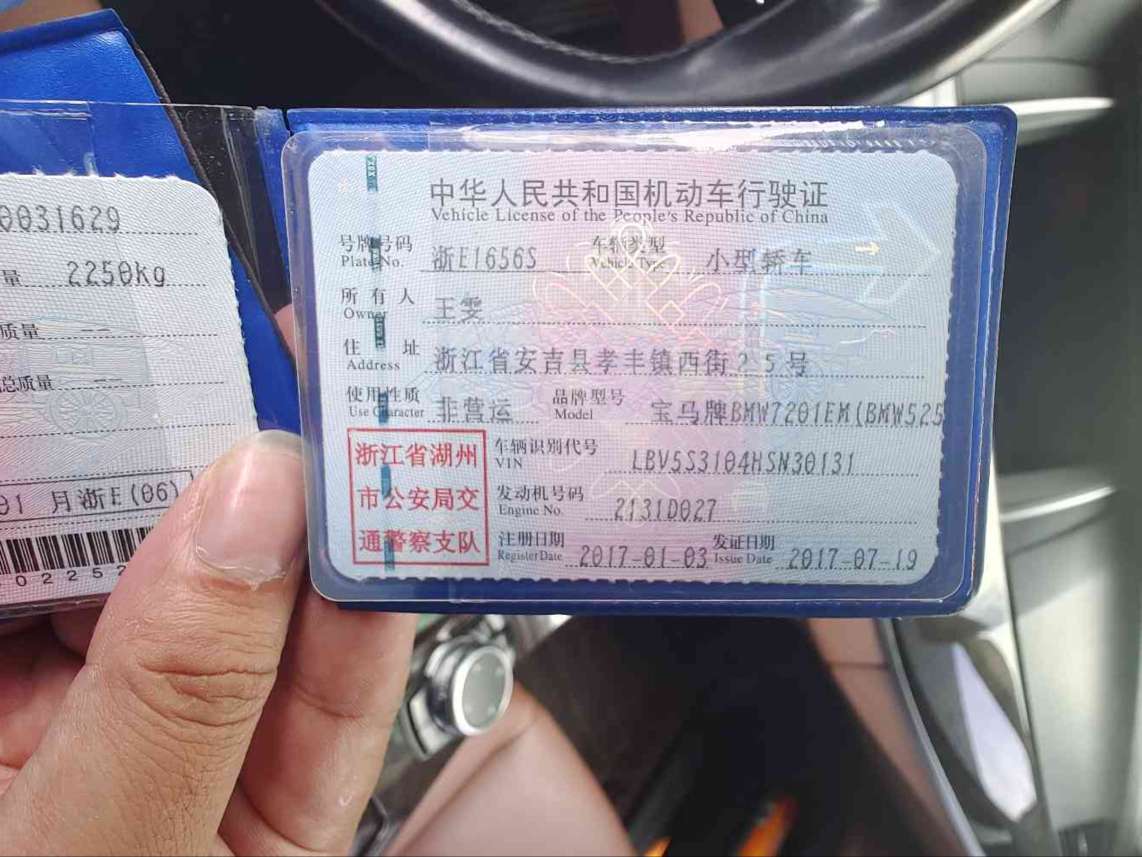 0031629
量 2250kg
质量 --
总质量 --
01 月浙E(06)
02252
中华人民共和国机动车行驶证
Vehicle License of the People's Republic of China
号牌号码 浙E1656S 车辆类型 小型轿车
Plate No. Vehicle Type
所有人 王雯
Owner
住址 浙江省安吉县孝丰镇西街25号
Address
使用性质 非营运 品牌型号 宝马牌BMW7201EM(BMW525
Use Character Model
浙江省湖州
市公安局交
通警察支队
车辆识别代号 LBV5S3104HSN30131
VIN
发动机号码 2131D027
Engine No.
注册日期 2017-01-03 发证日期 2017-07-19
Register Date Issue Date